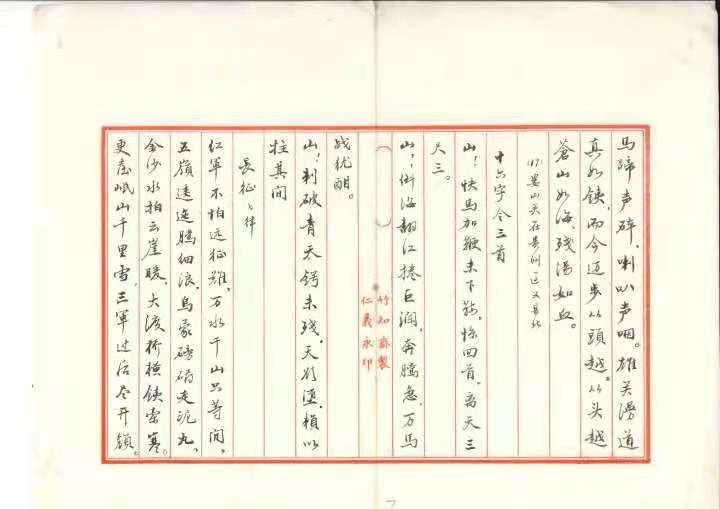 馬蹄声碎,喇叭声咽。雄关漫道
真如鉄,而今迈步从頭越。从头越
蒼山如海,残陽如血。
(17)娄山关在贵州遵义县北
十六字令三首
山!快馬加鞭未下鞍。惊回首,离天三
尺三。
山!倒海翻江捲巨澜,奔騰急,万馬
战犹酣。
竹知斋製
仁義永印
山!刺破青天锷未残,天欲墮,賴以
柱其间
長征 七律
红軍不怕远征难,万水千山只等闲,
五嶺逶迤騰细浪,烏蒙磅礴走泥丸,
金沙水拍云崖暖,大渡桥横鉄索寒。
更喜岷山千里雪,三軍过后尽开颜。